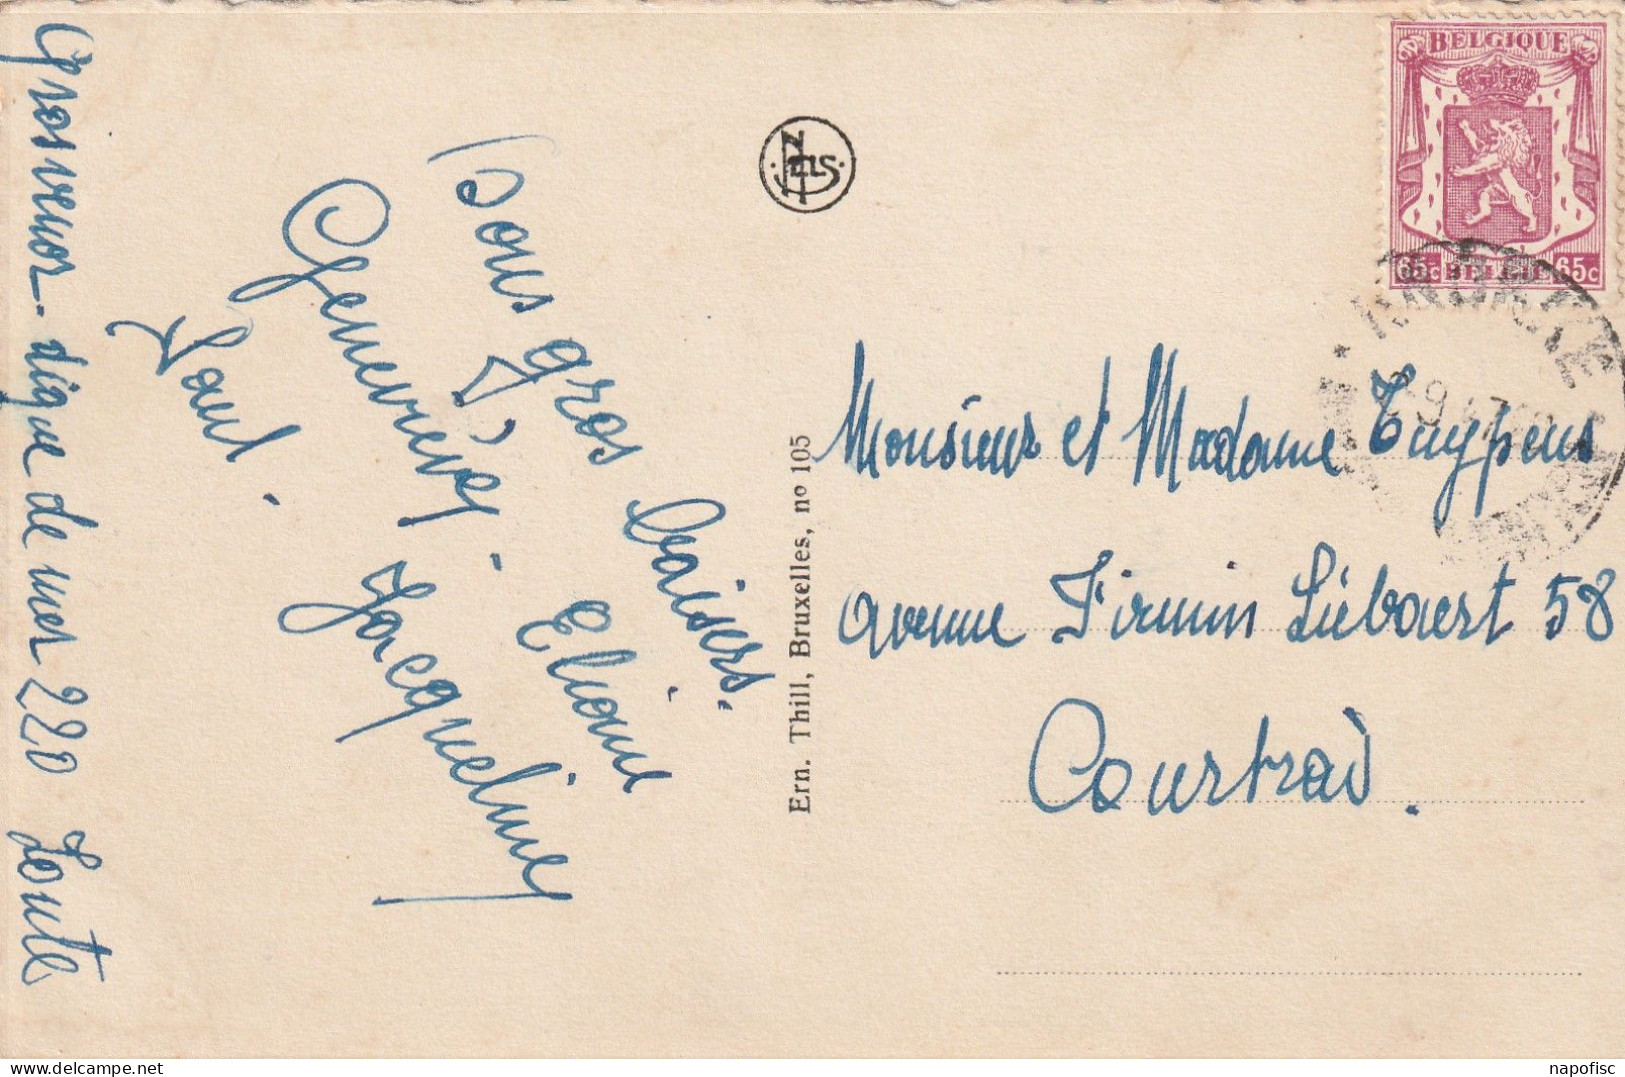 Grosvenor. digue de mer 220 Zoute
Bons gros baisers.
Eliane
Geneviève.
Jacqueline
Paul.
NELS
Ern. Thill, Bruxelles, no 105
BELGIQUE
65c BELGIË 65c
Monsieur et Madame Tuypens
avenue Firmin Liébaert 58
Courtrai.
napofisc